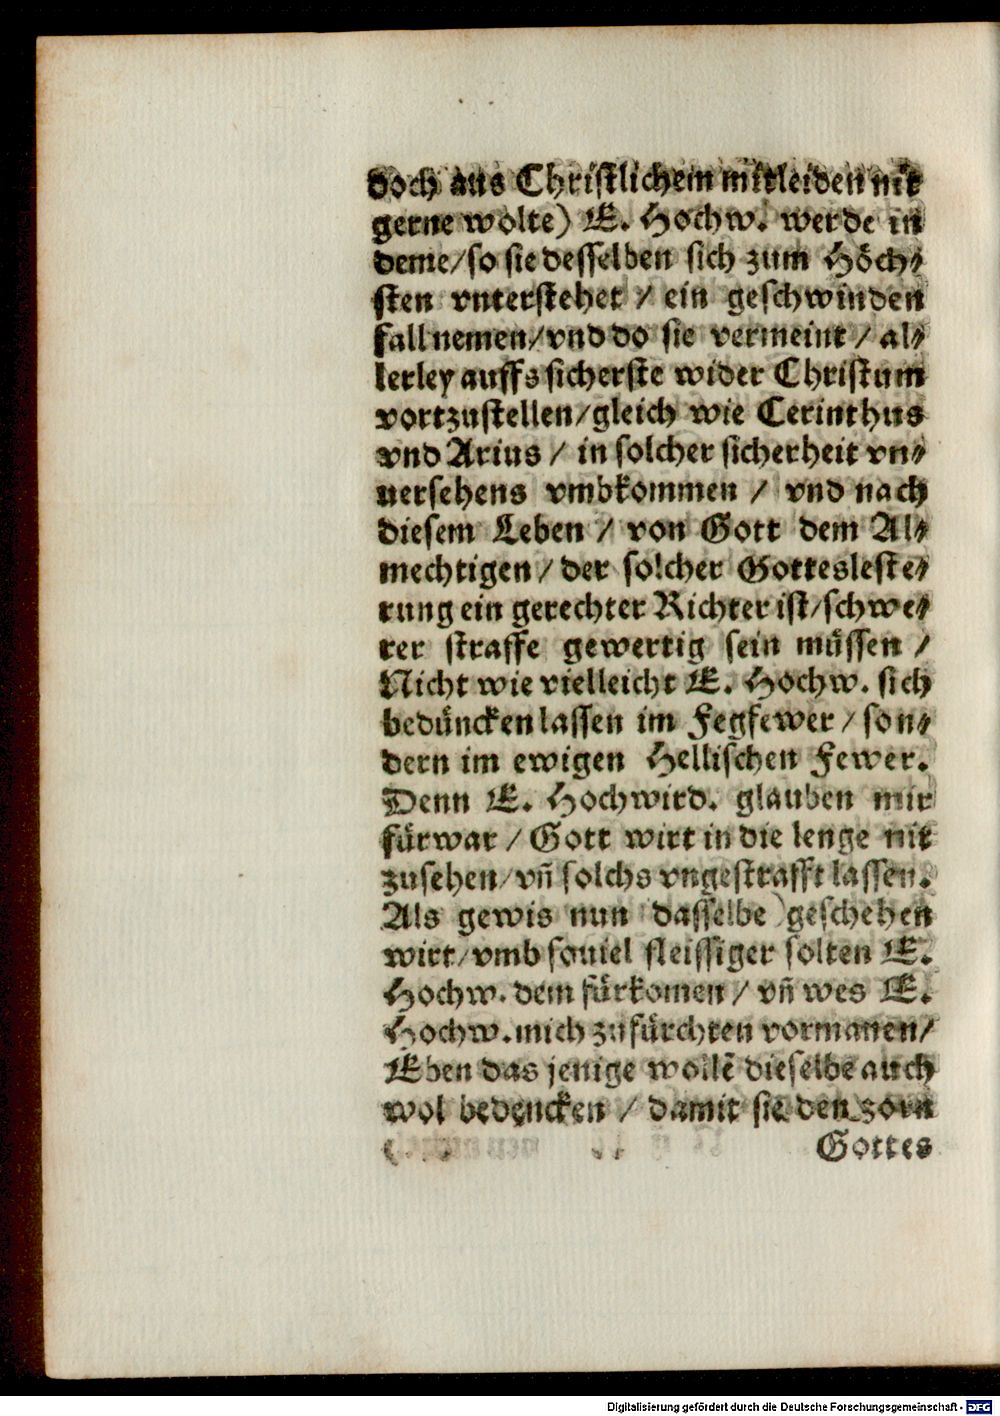 doch aus Christlichem mitleiden nit
gerne wolte) E. Hochw. werde in
deme/so sie desselben sich zum Höch⸗
sten vnterstehet / ein geschwinden
fall nemen/vnd do sie vermeint / al⸗
lerley auffs sicherste wider Christum
vortzustellen/gleich wie Cerinthus
vnd Arius / in solcher sicherheit vn⸗
uersehens vmbkommen / vnd nach
diesem Leben / von Gott dem Al⸗
mechtigen / der solcher Gotteslеste⸗
rung ein gerechter Richter ist/schwe⸗
rer straffe gewertig sein müssen /
Nicht wie vielleicht E. Hochw. sich
bedüncken lassen im Fegfewer / son⸗
dern im ewigen Hellischen Fewer.
Denn E. Hochwird. glauben mir
fürwar / Gott wirt in die lenge nit
zusehen/vñ solchs vngestrafft lassen.
Als gewis nun dasselbe geschehen
wirt/vmb souiel fleissiger solten E.
Hochw. dem fürkomen / vñ wes E.
Hochw. mich zufürchten vormanen/
Eben das jenige wollē dieselbe auch
wol bedencken / damit sie den zorn
Gottes
Digitalisierung gefördert durch die Deutsche Forschungsgemeinschaft - DFG